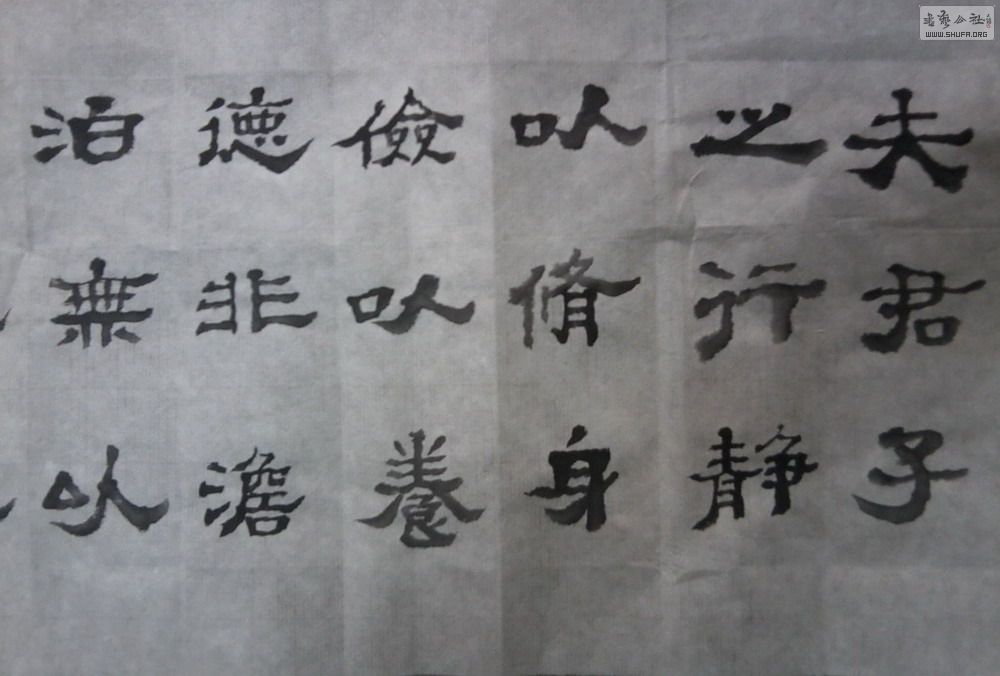 夫君子
之行静
以脩身
儉以養
德非澹
泊無以
書藝公社
WWW.SHUFA.ORG